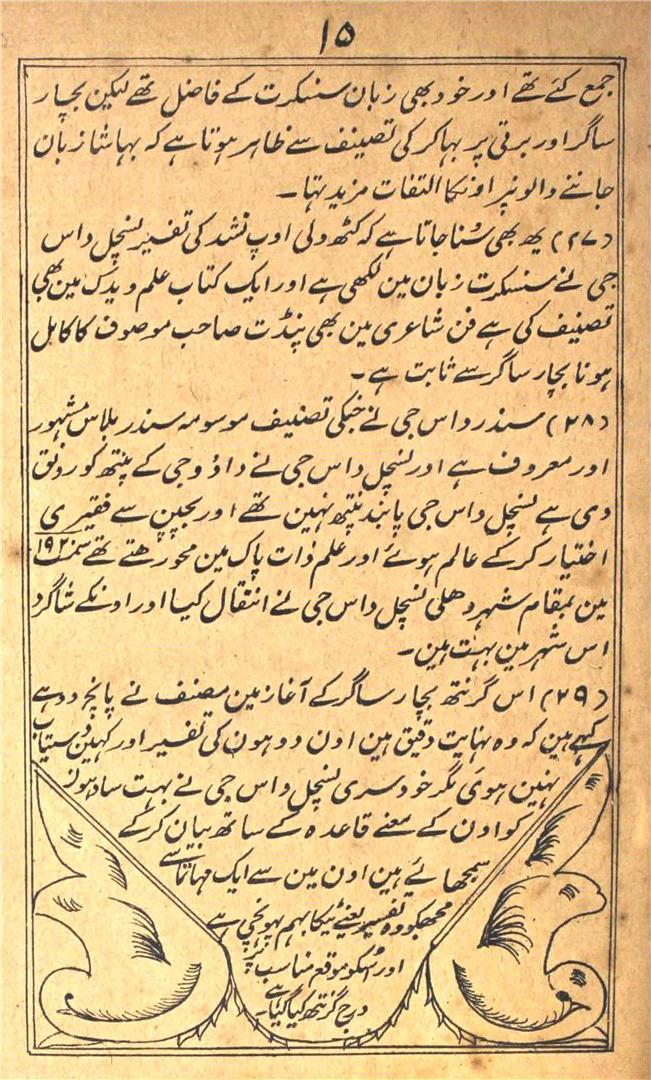 ۱۵
جمع کئے تھے اور خود بھی زبان سنسکرت کے فاضل تھے لیکن بچار
ساگر اور برتی پر بہاکر کی تصینف سے ظاہر ہوتا ہے کہ بہاشا زبان
جاننے والونپر اونکا التفات مزید تہا۔
(۲۷) یھ بھی سُنا جاتا ہے کہ کٹھ ولی اوپ نشد کی تفسیر نسچل داس
جی نے سنسکرت زبان مین لکھی ہے اور ایک کتاب علم ویدک مین بھی
تصنیف کی ہے فن شاعری مین بھی پنڈت صاحب موصوف کا کامل
ہونا بچار ساگر سے ثابت ہے۔
(۲۸) سندر داس جی نے جنکی تصنیف موسومہ سندر بلاس مشہور
اور معروف ہے اور نسچل داس جی نے دادو جی کے پنتھ کو رونق
دی ہے نسچل داس جی پابند پنتھ نہین تھے اور بچپن سے فقیری
اختیار کر کے عالم ہوئے اور علم ذات پاک مین محو رھتے تھے سمت ۱۹۲۰
مین بمقام شہر دھلی نسچل داس جی نے انتقال کیا اور اونکے شاگرد
اس شہر مین بہت ہین۔
(۲۹) اس گرنتھ بچار ساگر کے آغاز مین مصنف نے پانچ دوہے
کہے ہین کہ وہ نہایت دقیق ہین اون دوہون کی تفسیر اور کہین دستیاب
نہین ہوئی مگر خود سری نسچل داس جی نے بہت سادہون
کو اون کے معنے قاعدہ کے ساتھ بیان کر کے
سمجھائے ہین اون مین سے ایک مہاتما سے
مجھکو وہ تفسیر یعنے ٹیکا بہم پہونچی ہے
اور اُسکو موقع مناسب پر
درج گرنتھ کیا گیا ہے۔